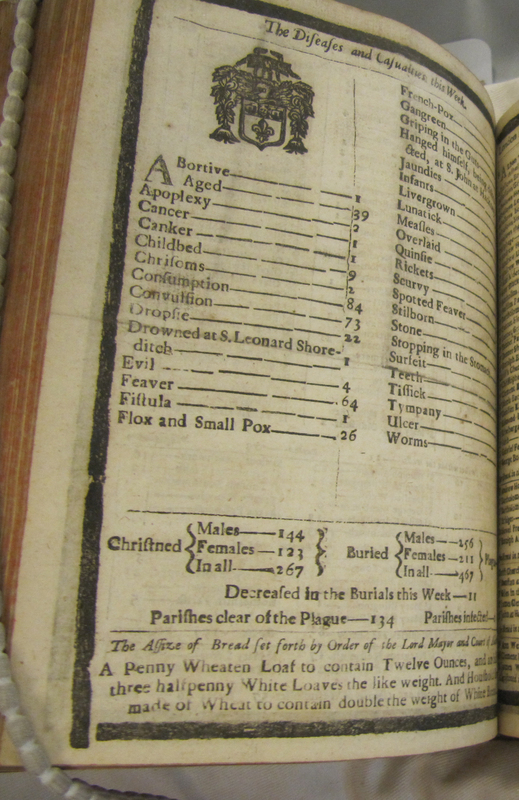 The Diſeaſes and Caſualties this Week.
ABortive 1
Aged 39
Apoplexy 2
Cancer 1
Canker 1
Childbed 9
Chriſoms 2
Conſumption 84
Convulſion 73
Dropſie 22
Drowned at S. Leonard Shore-
ditch 1
Evil 4
Feaver 64
Fiſtula 1
Flox and Small Pox 26
French-Pox
Gangreen
Griping in the Guts
Hanged himſelf, being
&ed, at S. John at
Jaundies
Infants
Livergrown
Lunatick
Meaſles
Overlaid
Quinſie
Rickets
Scurvy
Spotted Feaver
Stilborn
Stone
Stopping in the Stomach
Surfeit
Teeth
Tiſſick
Tympany
Ulcer
Worms
Chriſtned { Males 144
Females 123
In all 267 }
Buried { Males 256
Females 211
In all 467 }
Decreaſed in the Burials this Week 11
Pariſhes clear of the Plague 134 Pariſhes infected
The Aſſize of Bread ſet forth by Order of the Lord Mayor and Court of
A Penny Wheaten Loaf to contain Twelve Ounces, and
three halfpenny White Loaves the like weight. And
made of Wheat to contain double the weight of White